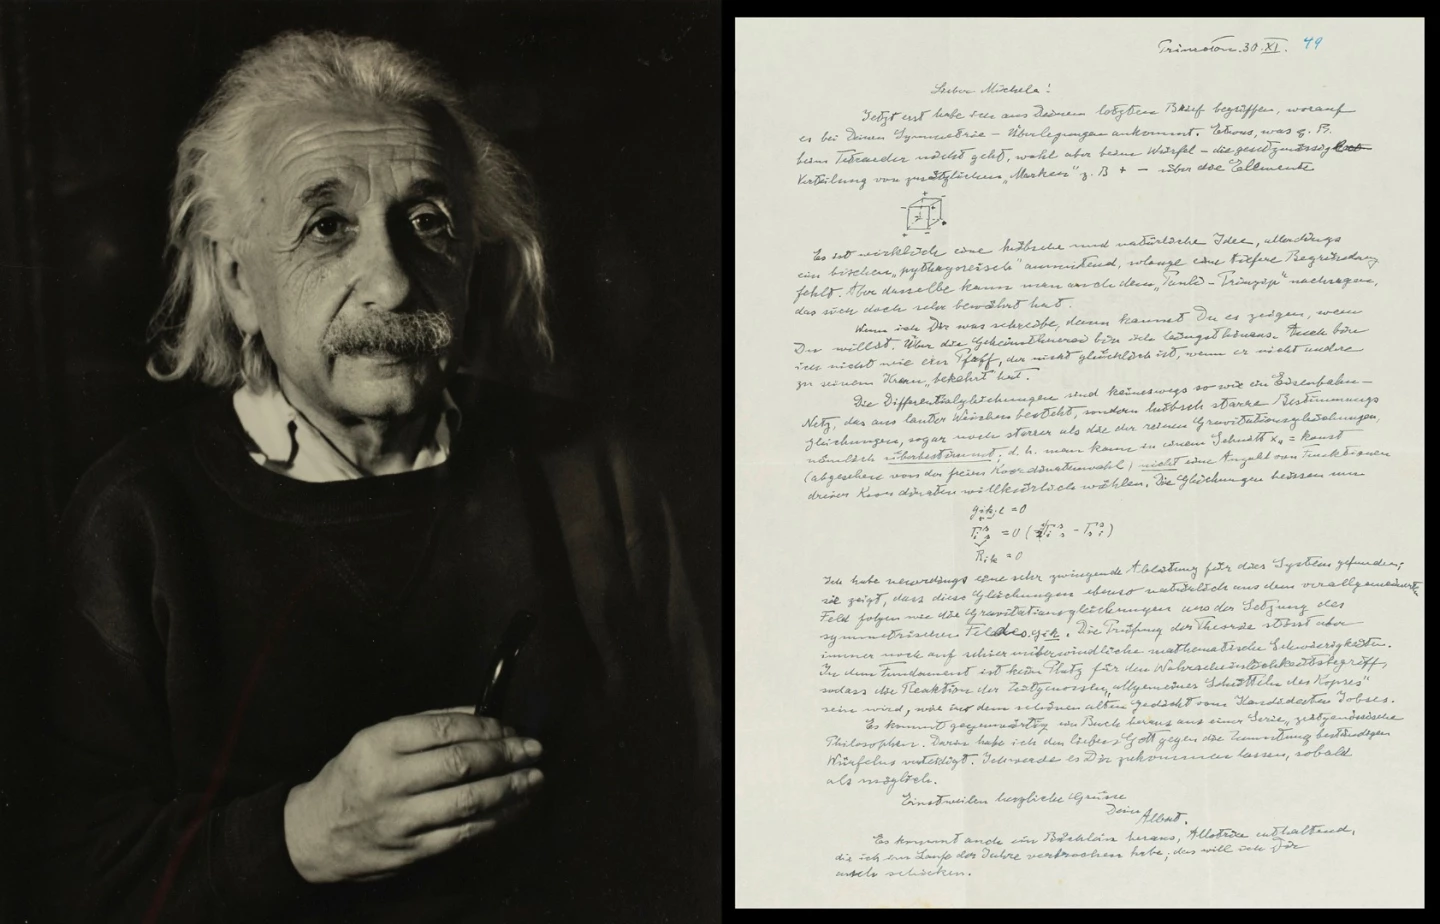 Princeton. 30. XI. 49
Lieber Michele!
Jetzt erst habe ich aus Deinem letzten Brief begriffen, worauf
es bei Deinen Symmetrie-Überlegungen ankommt. Etwas, was z. B.
beim Tetraeder nicht geht, wohl aber beim Würfel – die gesetzmässige
Verteilung von zusätzlichen „Marken" z. B + – über die Elemente
Es ist wirklich eine hübsche und natürliche Idee, allerdings
ein bischen „pythagoreisch" anmutend, solange eine tiefere Begründung
fehlt. Aber dasselbe kann man auch dem „Pauli-Prinzip" nachsagen,
das sich doch sehr bewährt hat.
Wenn ich Dir was schreibe, dann kannst Du es zeigen, wem
Du willst. Über die Geheimtuerei bin ich längst hinaus. Auch bin
ich nicht wie ein Pfaff, der nicht glücklich ist, wenn er nicht andere
zu seinem Kram „bekehrt hat.
Die Differentialgleichungen sind keineswegs so wie ein Eisenbahn-
Netz, das aus lauter Weichen besteht, sondern hübsch starre Bestimmungs
gleichungen, sogar noch starrer als die der reinen Gravitationsgleichungen,
nämlich überbestimmt; d. h. man kann in einem Schnitt x₄ = konst
(abgesehen von der freien Koordinatenwahl) nicht eine Anzahl von Funktionen
dreier Koordinaten willkürlich wählen. Die Gleichungen heissen nun
gik;l = 0
= 0
Rik = 0
Ich habe neuerdings eine sehr zwingende Ableitung für dies System gefunden;
sie zeigt, dass diese Gleichungen ebenso natürlich aus dem verallgemeinerten
Feld folgen wie die Gravitationsgleichungen aus der Setzung des
symmetrischen Feldes gik. Die Prüfung der Theorie stösst aber
immer noch auf schier unüberwindliche mathematische Schwierigkeiten.
In dem Fundament ist kein Platz für den Wahrscheinlichkeitsbegriff,
sodass die Reaktion der Zeitgenossen „allgemeines Schütteln des Kopfes"
sein wird, wie in dem schönen alten Gedicht vom Kandidaten Jobses.
Es kommt gegenwärtig ein Buch heraus aus einer Serie „zeitgenössische
Philosophen. Darin habe ich den lieben Gott gegen die Zumutung beständigen
Würfelns verteidigt. Ich werde es Dir zukommen lassen, sobald
als möglich.
Einstweilen herzliche Grüsse
Dein Albert.
Es kommt auch ein Büchlein heraus, Allotria enthaltend,
die ich im Laufe der Jahre verbrochen habe; das will ich Dir
auch schicken.